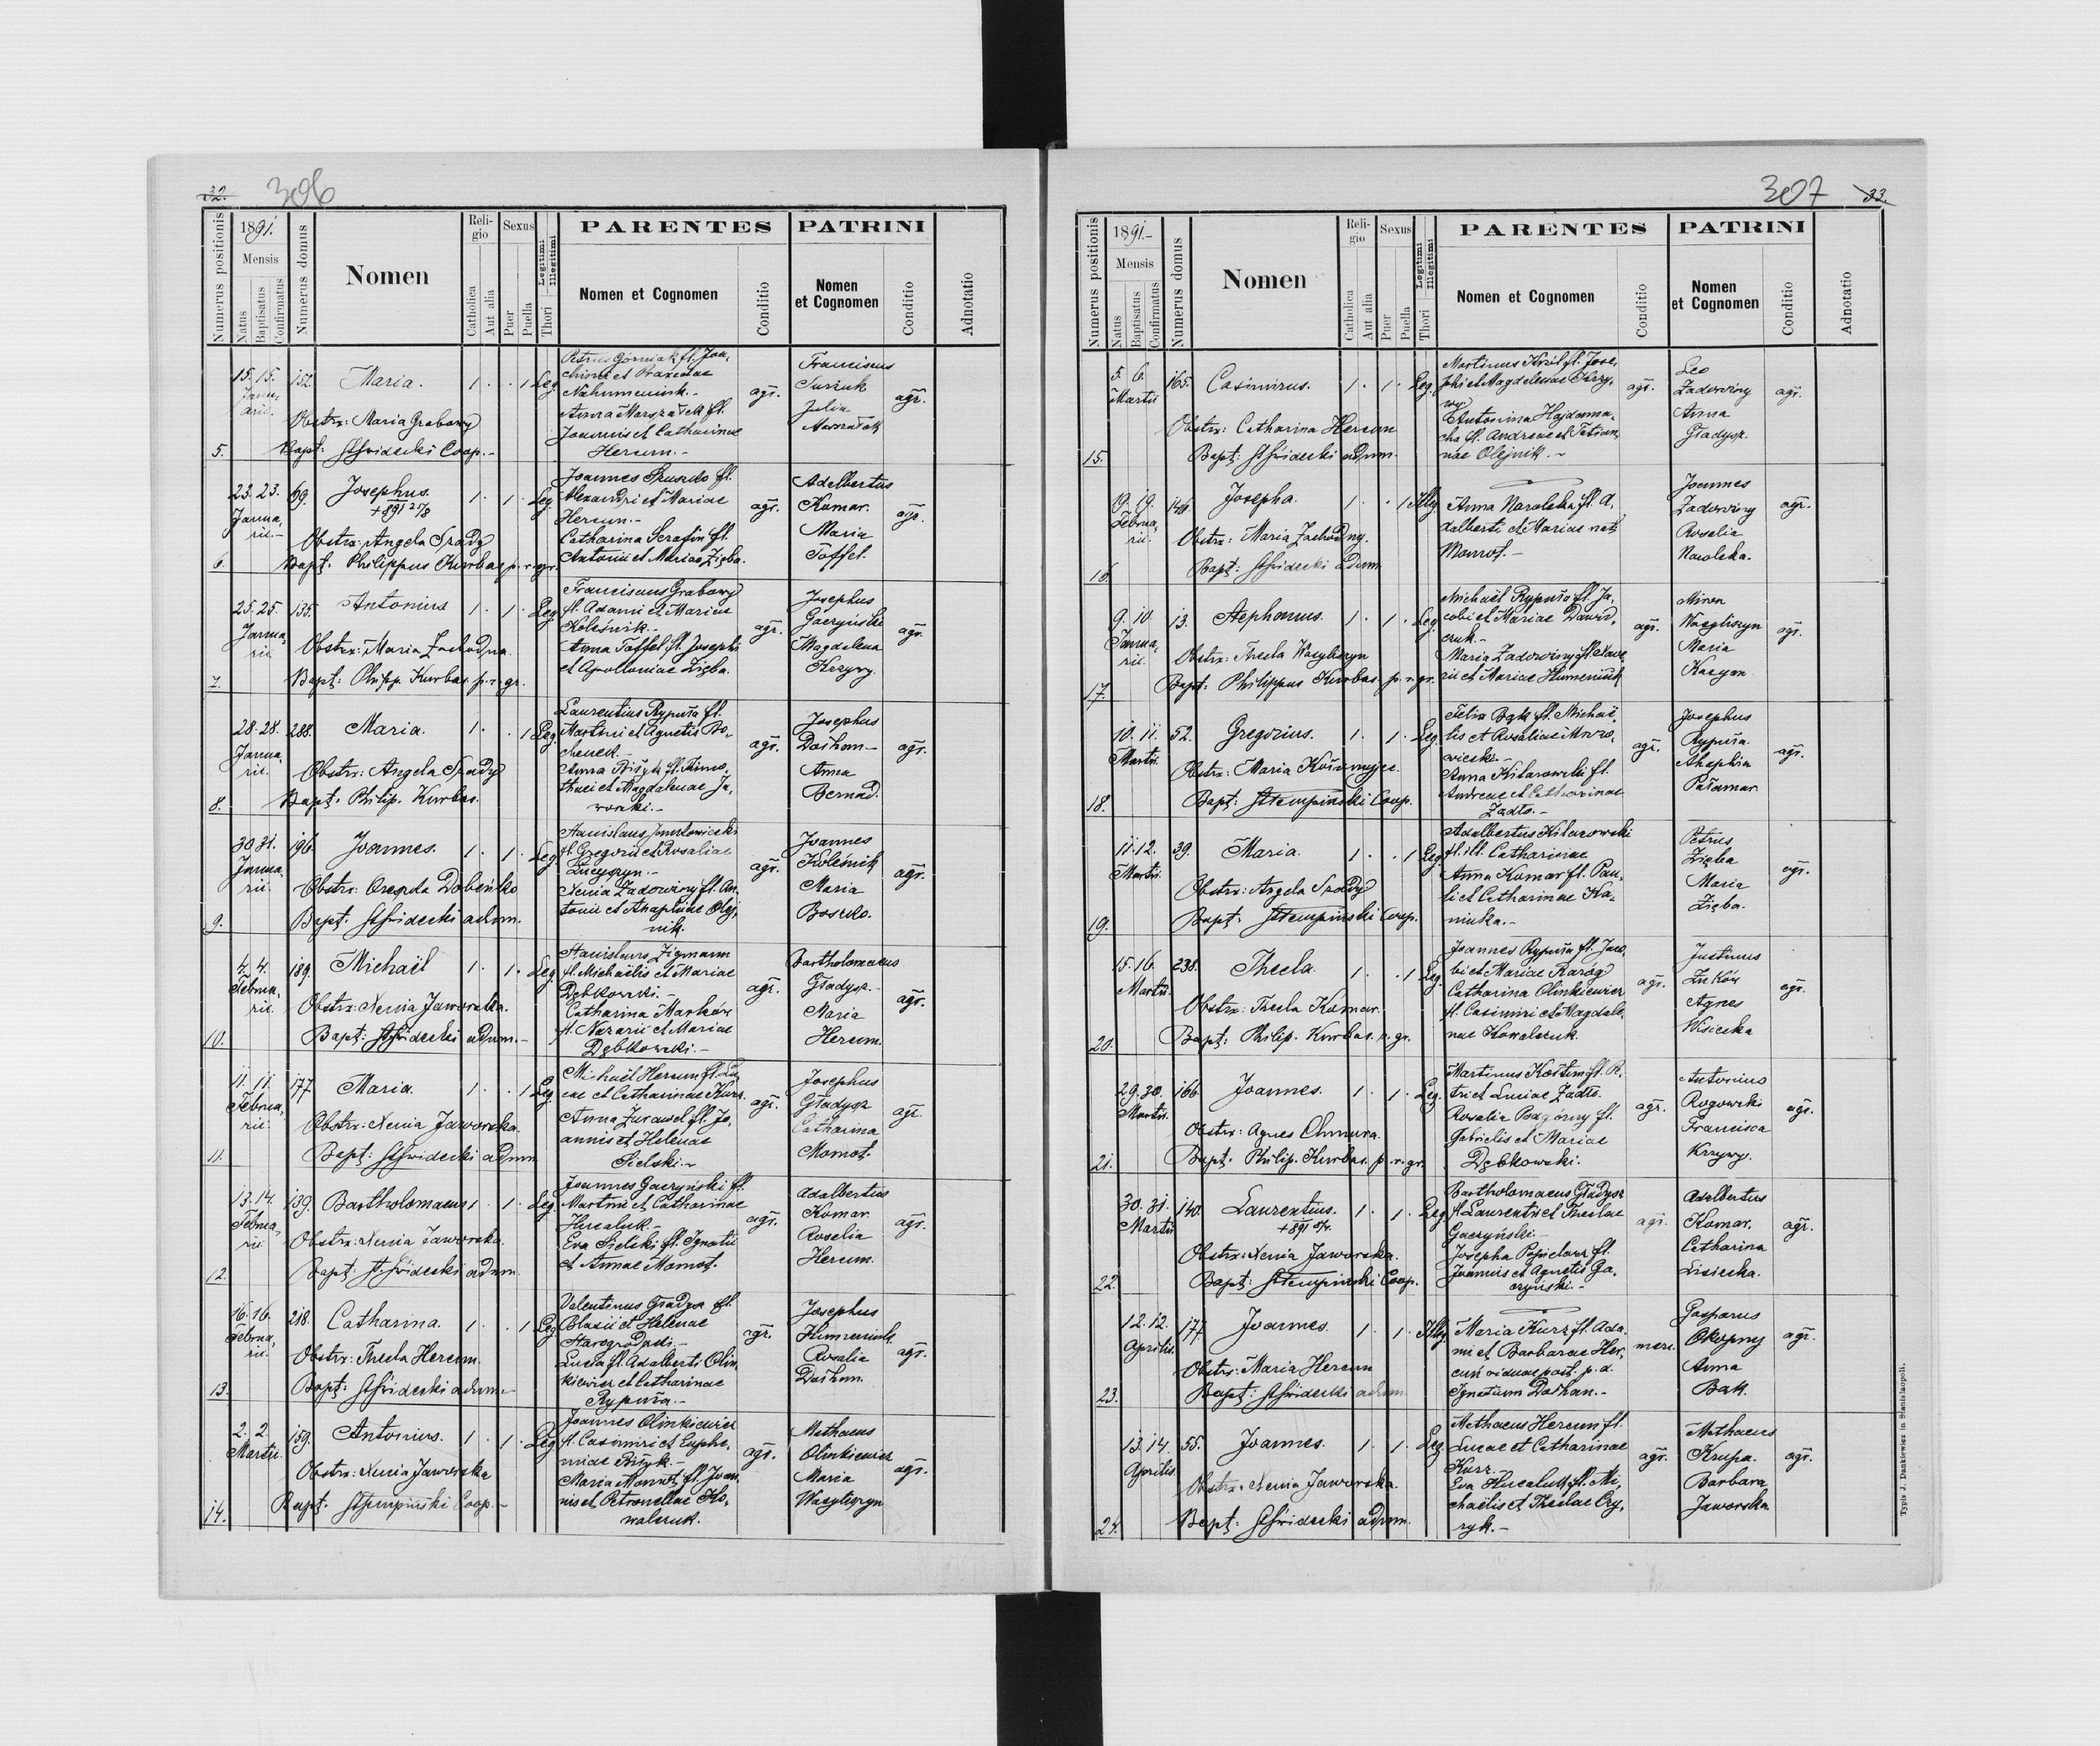 32.
306
Numerus positionis
1891.
Mensis
Natus
Baptisatus
Confirmatus
Numerus domus
Nomen
Reli-
gio
Catholica
Aut alia
Sexus
Puer
Puella
Legitimi
Illegitimi
Thori
PARENTES
Nomen et Cognomen
Conditio
PATRINI
Nomen
et Cognomen
Conditio
Adnotatio
5.
15. 15.
Janu,
arii.
152.
Maria.
1. . 1 Leg
Obstx: Maria Grabowy
Bapt: Coop.-
Petrus Górniak fl. Joa,
chimi et Praxedae
Anna Marszałek fl.
Joannis et Catharinae
Hercun.-
agr.
Franciscus
Julia
Marszałek
agr.
6.
23. 23.
Janua,
rii.-
69.
Josephus.
+ 891 21/8
1. 1. Leg
Obstx: Angela Szady
Bapt. Philippus Kurbas p. r. gr.
Joannes fl.
Alexandri et Mariae
Hercun.-
Catharina Serafin fl.
Antonii et Mariae Zięba.
agr.
Adelbertus
Komar.
Maria
Toffel.
agr.
7.
25. 25.
Janua,
rii.
135.
Antonius
1. 1. Leg
Obstx: Maria Zachodna.
Bapt: Philipp. Kurbas. p. r. gr.
Franciscus Grabowy
fl. Adami et Mariae
Koleśnik.-
Anna Toffel fl. Josephi
et Apolloniae Zięba.
agr.
Josephus
Gaczyński
Magdalena
Krzywy.
agr.
8.
28. 28.
Janua,
rii.
288.
Maria.
1. . 1 Leg.
Obstx: Angela Szady
Bapt. Philip. Kurbas.
Laurentius Rypuła fl.
Martini et Agnetis Bo,
chenek.-
Anna fl. Timo,
thaei et Magdalenae Ja,
worski.-
agr.
Josephus
Dośhan-
Anna
Bernad.
agr.
9.
30 31.
Janua,
rii.
196.
Joannes.
1. 1. Leg
Obstx:
Bapt. administr adnm.
Stanislaus
fl. Gregorii et Rosaliae
Xenia Zadowiny fl. An,
tonii et Ahaphiae Olej,
nik.
agr.
Joannes
Koleśnik
Maria
Boszko.
agr.
10.
4. 4.
Februa,
rii.
189.
Michaël
1. 1. Leg.
Obstx: Xenia Jaworska.
Bapt: adnm.-
Stanislaus Zigmann
fl. Michaëlis et Mariae
Dębkowski.-
Catharina Marków
fl. Nazarii et Mariae
Dębkowski.-
agr.
Bartholomaeus
Gładysz.-
Maria
Hercun.
agr.
11.
11. 11.
Februa,
rii.
177
Maria.
1. . 1 Leg.
Obstx: Xenia Jaworska.
Bapt: adnm
Michaël Hercun fl. Lu,
cae et Catharinae Kurz.
Anna Żurawel fl. Jo,
annis et Helenae
Sielski.-
agr.
Josephus
Gładysz
Catharina
Momot.
agr
12.
13. 14.
Februa,
rii
139.
Bartholomaeus
1. 1. Leg.
Obstx: Xenia Jaworska.
Bapt: adnm.
Joannes Gaczyński fl.
Martini et Catharinae
Hucaluk.-
Eva Sielski fl. Ignatii
et Annae Momot.
agr.
Adalbertus
Komar.
Rosalia
Hercun.
agr.
13.
16. 16.
Februa,
rii.
218.
Catharina.
1. . 1 Leg
Obstx: Thecla Hercun.
Bapt: adnm.-
Valentinus Gładysz fl.
Blasii et Helenae
Lucia fl. Adalberti Olin,
kiewicz et Catharinae
Rypuła.-
agr.
Josephus
Rosalia
Dośhan.
agr.
14.
2. 2.
Martii.
159.
Antonius.
1. 1. Leg
Obstx: Xenia Jaworska
Bapt: Coop.-
Joannes Olinkiewicz
fl. Casimiri et Euphe,
miae
Maria Momot, fl. Joan,
nis et Petronellae Ko,
walczuk.
agr.
Mathaeus
Olinkiewicz
Maria
Wasyliszyn
agr.
307
33.
Numerus positionis
1891.-
Mensis
Natus
Baptisatus
Confirmatus
Numerus domus
Nomen
Reli-
gio
Catholica
Aut alia
Sexus
Puer
Puella
Legitimi
Illegitimi
Thori
PARENTES
Nomen et Cognomen
Conditio
PATRINI
Nomen
et Cognomen
Conditio
Adnotatio
15.
5. 6.
Martii
165.
Casimirus.
1. 1. Leg.
Obstx: Catharina Hercun
Bapt: adnm.
Martinus Król fl. Jose,
phi et Magdalenae Krzy,
wy.
Antonina Hajdama,
cha fl. Andreae et Tatian,
nae Olejnik.-
agr.
Leo
Zadowiny
Anna
Gładysz.
agr.
16.
19. 19.
Februa,
rii.
146.
Josepha.
1. . 1 Illeg
Obstx: Maria Zachodny.
Bapt: adnm
Anna Narolska fl. A,
dalberti et Mariae nat,
Momot.-
Joannes
Zadowiny
Rosalia
Narolska.
agr.
17.
9. 10
Janua,
rii.
13.
Stephanus.
1. 1. Leg
Obstx: Thecla Wasyliszyn
Bapt: Philippus Kurbas. p. r. gr.
Michaël Rypuła fl. Ja,
cobi et Mariae Dawid,
czuk.-
Maria Zadowiny
et Mariae Humeniuk
agr.
Miron
Wasyliszyn
Maria
Kasyan
agr.
18.
10. 11.
Martii.
52.
Gregorius.
1. 1. Leg
Obstx: Maria
Bapt: Stempiński Coop.
Felix Bąk fl. Michaë,
lis et Rosaliae Mro,
wicski.-
Anna Kilarowski fl.
Andreae et Catharinae
Zadło.-
agr.
Josephus
Rypuła.
Ahaphia
Pałamar.
agr.
19.
11. 12.
Martii.
39.
Maria.
1. . 1 Leg
Obstx: Angela Szady
Bapt: Stempiński Coop.
Adalbertus Kilarowski
fl. ill. Catharinae
Anna Komar fl. Pau,
li et Catharinae Ka,
niuka.-
Petrus
Zięba
Maria
Zięba.
agr.
20.
15. 16.
Martii.
238.
Thecla.
1. . 1 Leg
Obstx: Thecla Komar.
Bapt: Philip. Kurbas. r. gr.
Joannes Rypuła fl. Jaco,
bi et Mariae Raróg
Catharina Olinkiewicz
fl. Casimiri et Magdale,
nae Kowalczuk.
agr.
Justinus
Żuków
Agnes
Wisicska
agr.
21.
29. 30.
Martii.
166.
Joannes.
1. 1. Leg.
Obstx: Agnes Chmura.
Bapt. Philip. Kurbas. p. r. gr.
Martinus fl. Pe,
tri et Luciae Zadło.
Rosalia Podgórny fl.
Gabrielis et Mariae
Dębkowski.
agr.
Antonius
Rogowski
Francisca
Krzywy.
agr.
22.
30. 31.
Martii
140.
Laurentius.
+ 891
1. 1. Leg
Obstx: Xenia Jaworska.
Bapt: Stempiński Coop.
Bartholomaeus Gładysz
fl. Laurentii et Theclae
Gaczyński.-
Josepha Popielarz fl.
Joannis et Agnetis Ga,
czyński.-
agr.
Adelbertus
Komar.
Catharina
Lisicska.
agr.
23.
12. 12.
Aprilis.
177.
Joannes.
1. 1. Illeg
Obstx: Maria Hercun
Bapt: adnm.
Maria Kurz fl. Ada,
mi et Barbarae Her,
cun viduae post. p. d.
Ignatium Dośhan.-
merc.
Gasparus
Okopny
Anna
Bak.
agr.
24.
13. 14.
Aprilis.
55.
Joannes.
1. 1. Leg
Obstx: Xenia Jaworska.
Bapt: adnm.
Mathaeus Hercun fl.
Lucae et Catharinae
Kurz.-
Eva Hucaluk fl. Mi,
chaëlis et Theclae Cry,
ryk.-
agr.
Mathaeus
Krupa.
Barbara
Jaworska.
agr.
Typis J. Dankiewicz in Stanislaopoli.